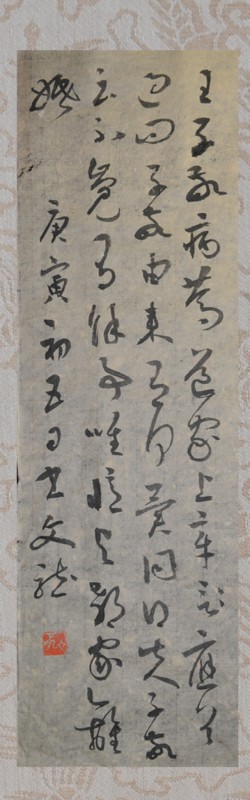 王子敬病篤道家上章應首
過問子敬由來有何異同得失子敬
云不覺有餘事唯憶與郗家離
婚 庚寅初五日書文